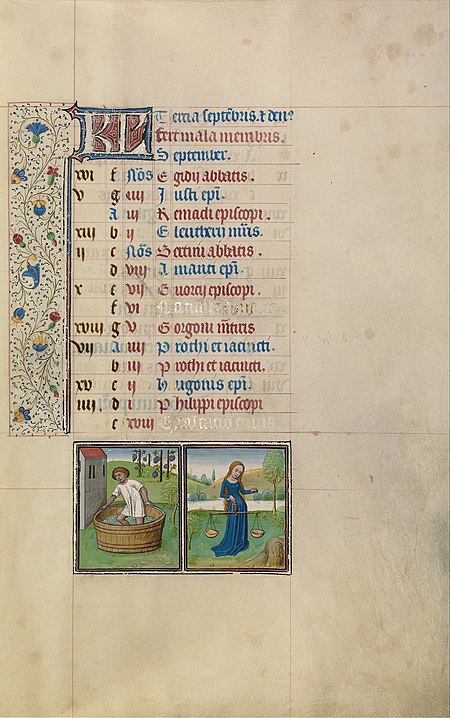 KL Tercia septēbris. ⁊ den⁹
fert mala membris.
September.
xvi f Nōs Egidii abbatis.
v g iiii Justi epī.
A iii Remacli episcopi.
xiii b ii Eleutherii
ii c Nōs Bertini abbatis.
d viii Amanti epī.
x e vii Evorcii episcopi
f vi
xviii g v Gorgonii
vii A iiii Prothi et iacincti.
b iii Prothi et iacincti.
xv c ii hugonis epī.
iiii d i Philippi episcopi
e xviii Exaltacio